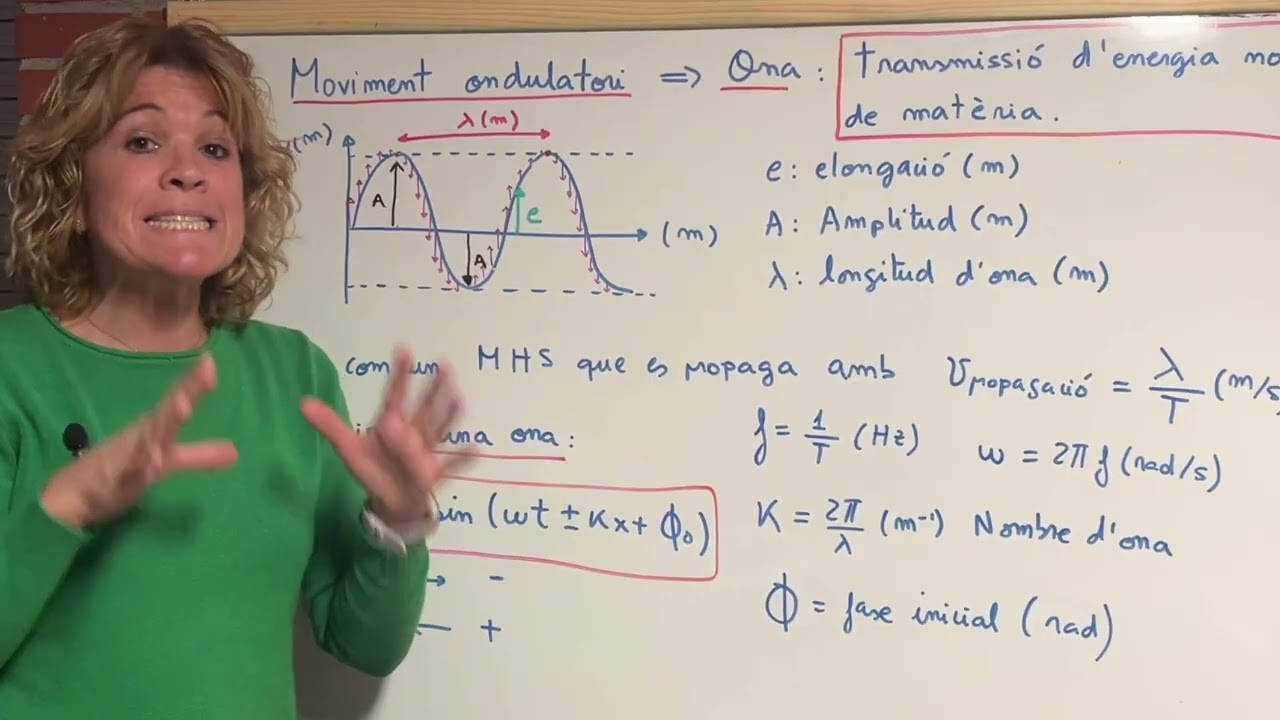 Moviment ondulatori ⇒ Ona: Transmissió d'energia no
de matèria.
(m)
λ(m)
A
A
e
(m)
e: elongació (m)
A: Amplitud (m)
λ: longitud d'ona (m)
com un MHS que es propaga amb Vpropagació = λ/T (m/s
f = 1/T (Hz)
w = 2πf (rad/s)
una ona:
sin (wt ± Kx + ϕ₀)
→ -
← +
K = 2π/λ (m⁻¹) Nombre d'ona
ϕ = fase inicial (rad)